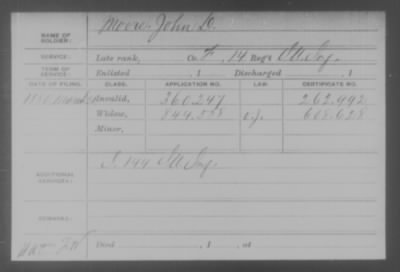 NAME OF SOLDIER: Moore John D.
SERVICE: Late rank, Co. F, 14 Reg't Ill Inf.
TERM OF SERVICE: Enlisted , 1 Discharged , 1
DATE OF FILING. CLASS. APPLICATION NO. LAW. CERTIFICATE NO.
1880 Invalid, 360.247 262.992
Widow, 844.558 608.628
Minor,
ADDITIONAL SERVICES: I. 144 Ill Inf.
REMARKS:
Died , 1 , at